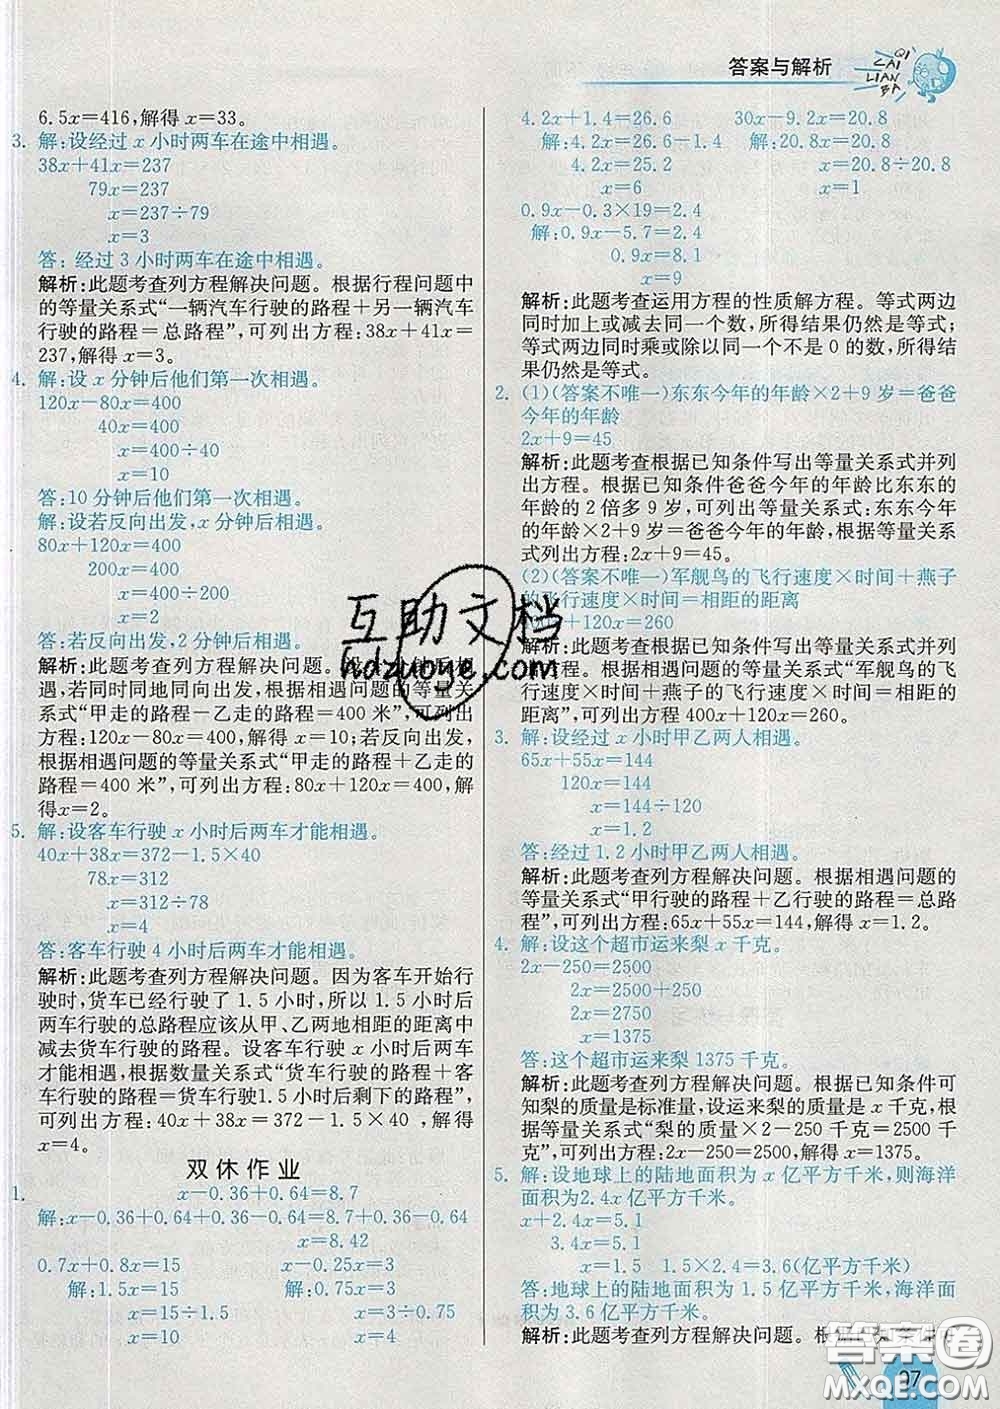 答案与解析
QI
CAI
LIAN
BA
6.5x=416,解得 x=33。
3. 解:设经过 x 小时两车在途中相遇。
38x+41x=237
79x=237
x=237÷79
x=3
答: 经过 3 小时两车在途中相遇。
解析:此题考查列方程解决问题。根据行程问题中
的等量关系式“一辆汽车行驶的路程+另一辆汽车
行驶的路程=总路程”,可列出方程:38x+41x=
237,解得 x=3。
4. 解:设 x 分钟后他们第一次相遇。
120x-80x=400
40x=400
x=400÷40
x=10
答:10 分钟后他们第一次相遇。
解:设若反向出发,x 分钟后相遇。
80x+120x=400
200x=400
x=400÷200
x=2
答:若反向出发,2 分钟后相遇。
解析:此题考查列方程解决问题。
遇,若同时同地同向出发,根据相遇问题的等量关
系式“甲走的路程-乙走的路程=400 米”,可列出
方程:120x-80x=400,解得 x=10;若反向出发,
根据相遇问题的等量关系式“甲走的路程+乙走的
路程=400 米”,可列出方程:80x+120x=400,解
得 x=2。
5. 解:设客车行驶 x 小时后两车才能相遇。
40x+38x=372-1.5×40
78x=312
x=312÷78
x=4
答:客车行驶 4 小时后两车才能相遇。
解析:此题考查列方程解决问题。因为客车开始行
驶时,货车已经行驶了 1.5 小时,所以 1.5 小时后
两车行驶的总路程应该从甲、乙两地相距的距离中
减去货车行驶的路程。设客车行驶 x 小时后两车
才能相遇,根据数量关系式“货车行驶的路程+客
车行驶的路程=货车行驶1.5 小时后剩下的路程”,
可列出方程:40x+38x=372-1.5×40,解得
x=4。
双休作业
1. x-0.36+0.64=8.7
解:x-0.36+0.64+0.36-0.64=8.7+0.36-0.64
x=8.42
0.7x+0.8x=15 x-0.25x=3
解:1.5x=15 解:0.75x=3
x=15÷1.5 x=3÷0.75
x=10 x=4
4.2x+1.4=26.6 30x-9.2x=20.8
解:4.2x=26.6-1.4 解:20.8x=20.8
4.2x=25.2 x=20.8÷20.8
x=6 x=1
0.9x-0.3×19=2.4
解:0.9x-5.7=2.4
0.9x=8.1
x=9
解析:此题考查运用方程的性质解方程。等式两边
同时加上或减去同一个数,所得结果仍然是等式;
等式两边同时乘或除以同一个不是 0 的数,所得结
果仍然是等式。
2. (1)(答案不唯一)东东今年的年龄×2+9 岁=爸爸
今年的年龄
2x+9=45
解析:此题考查根据已知条件写出等量关系式并列
出方程。根据条件爸爸今年的年龄比东东今年
的年龄的 2 倍多 9 岁,可得等量关系式:东东今年
的年龄×2+9 岁=爸爸今年的年龄,根据等量关系
式列出方程:2x+9=45。
(2)(答案不唯一)军舰鸟的飞行速度×时间+燕子
的飞行速度×时间=相距的距离
+10x=260
解析:此题考查根据已知条件写出等量关系式并列
方程。根据相遇问题的等量关系式“军舰鸟的飞
行速度×时间+燕子的飞行速度×时间=相距的
距离”,可列出方程 400x+10x=260。
3. 解:设经过 x 小时甲乙两人相遇。
65x+55x=144
120x=144
x=144÷120
x=1.2
答:经过 1.2 小时甲乙两人相遇。
解析:此题考查列方程解决问题。根据相遇问题的
等量关系式“甲行驶的路程+乙行驶的路程=总路
程”,可列出方程:65x+55x=144,解得 x=1.2。
4. 解:设这个超市运来梨 x 千克。
2x-250=2500
2x=2500+250
2x=2750
x=1375
答:这个超市运来梨 1375 千克。
解析:此题考查列方程解决问题。根据已知条件可
知梨的质量是标准量,设运来梨的质量是 x 千克,
根据等量关系式“梨的质量×2-250 千克=2500 千
克”,可列出方程:2x-250=2500,解得 x=1375。
5. 解:设地球上的陆地面积为 x 亿平方千米,则海洋
面积为2.4x 亿平方千米。
x+2.4x=5.1
3.4x=5.1
x=1.5 1.5×2.4=3.6(亿平方千米)
答:地球上的陆地面积为 1.5 亿平方千米,海洋
面积为 3.6 亿平方千米。
解析:此题考查列方程解决问题。
97
互助文档
hdzuoye.com
答案圈
MXQE.COM